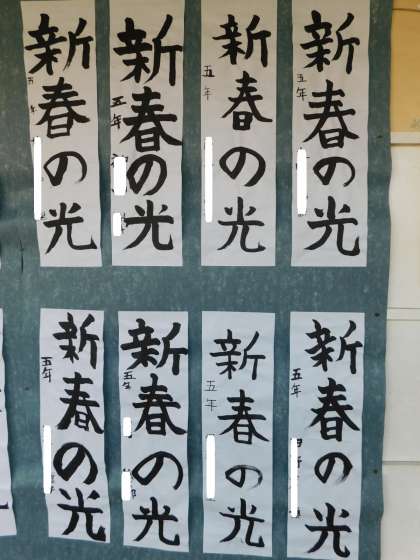 新春の光
五年
新春の光
五年
新春の光
五年
新春の光
五年
新春の光
五年
新春の光
五年
新春の光
五年
新春の光
五年